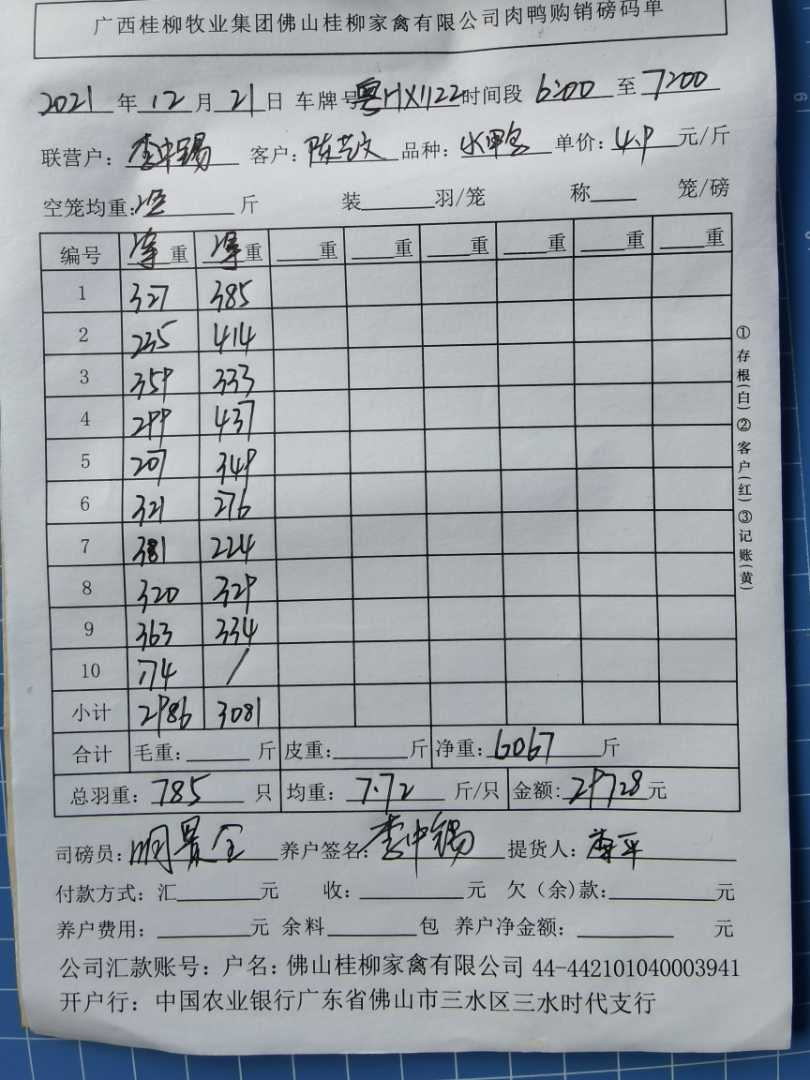 广西桂柳牧业集团佛山桂柳家禽有限公司肉鸭购销磅码单
2021 年 12 月 21 日 车牌号 粤HX1122 时间段 6:00 至 7:00
联营户：李中锡 客户：陈艺文 品种：水鸭 单价：4.9 元/斤
空笼均重： 斤 装 羽/笼 称 笼/磅
编号 净重 净重 重 重 重 重 重 重
1 327 385
2 235 414
3 359 333
4 299 437
5 207 349
6 321 276
7 381 224
8 320 329
9 363 334
10 174 /
小计 2986 3081
合计 毛重： 斤 皮重： 斤 净重：6067 斤
总羽重：785 只 均重：7.72 斤/只 金额：29728 元
司磅员：明景全 养户签名：李中锡 提货人：
付款方式：汇 元 收： 元 欠（余）款： 元
养户费用： 元 余料 包 养户净金额： 元
公司汇款账号：户名：佛山桂柳家禽有限公司 44-442101040003941
开户行：中国农业银行广东省佛山市三水区三水时代支行
①存根(白)②客户(红)③记账(黄)